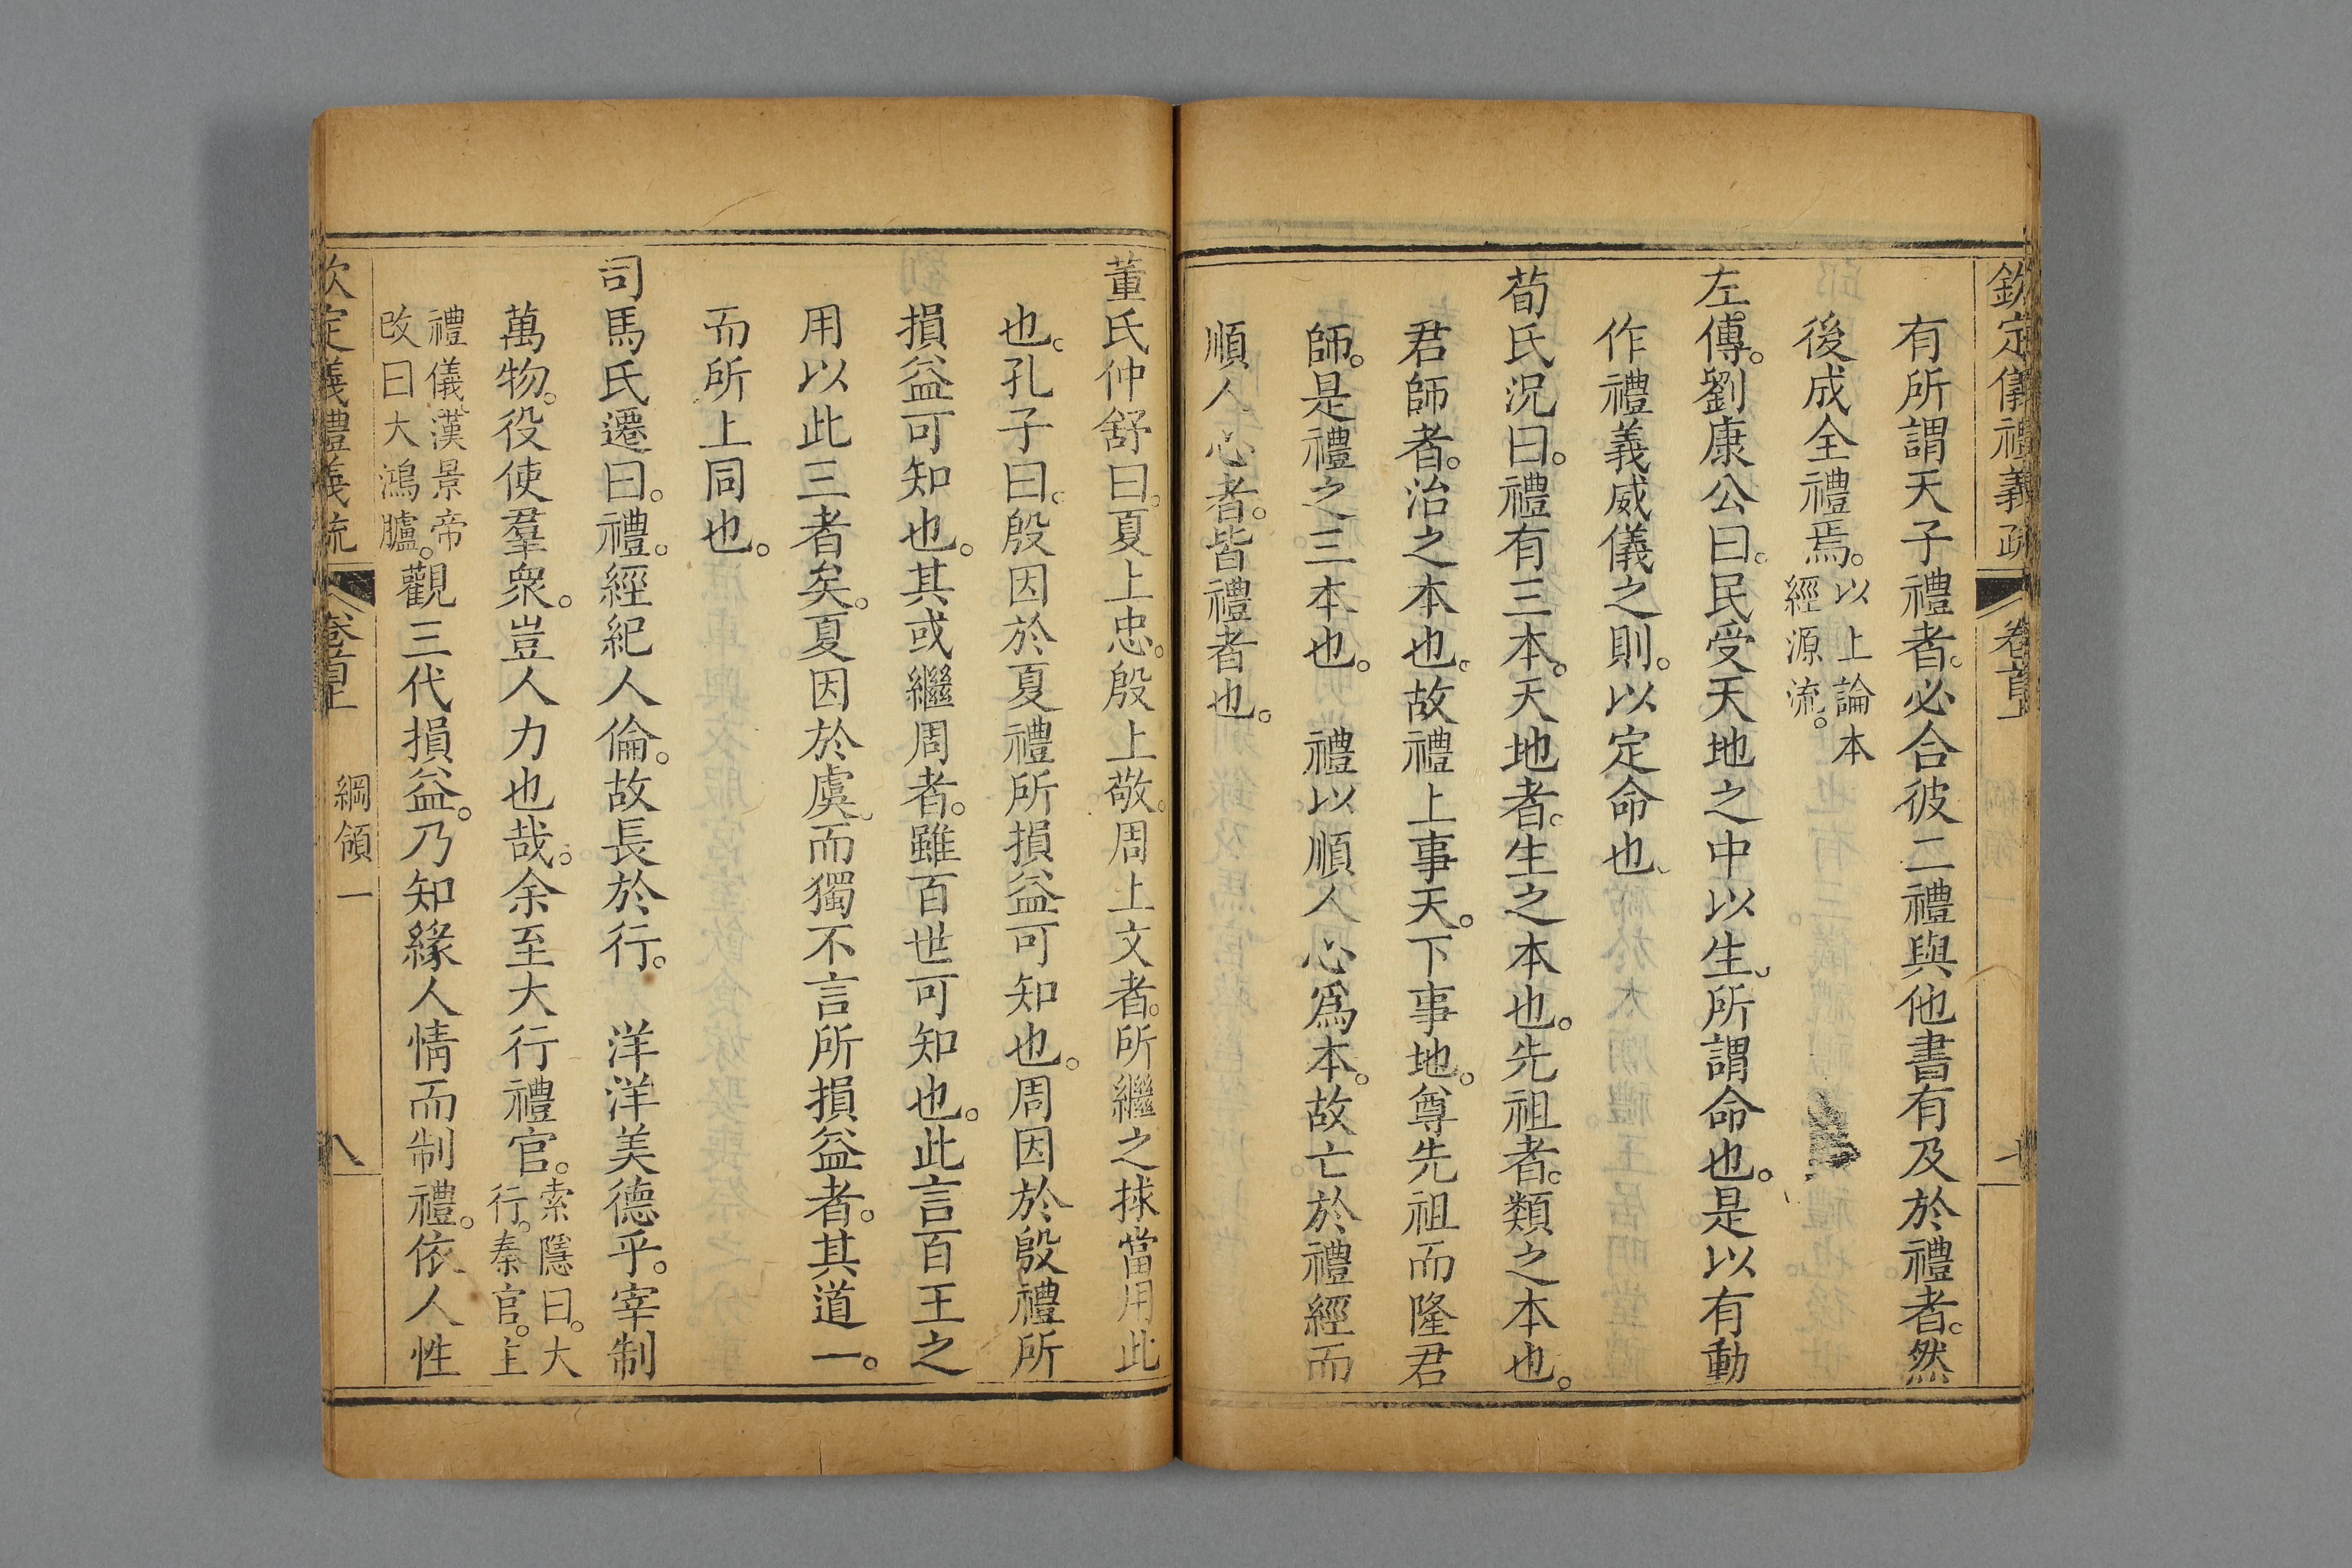 欽定儀禮義疏 卷首上 七
有所謂天子禮者。必合彼二禮與他書有及於禮者。然
後成全禮焉。以上論本經源流。
左傳。劉康公曰。民受天地之中以生。所謂命也。是以有動
作禮義威儀之則。以定命也。
荀氏況曰。禮有三本。天地者。生之本也。先祖者。類之本也。
君師者。治之本也。故禮上事天。下事地。尊先祖而隆君
師。是禮之三本也。 禮以順人心爲本。故亡於禮經而
順人心者。皆禮者也。
董氏仲舒曰。夏上忠。殷上敬。周上文者。所繼之捄當用此
也。孔子曰。殷因於夏禮所損益可知也。周因於殷禮所
損益可知也。其或繼周者。雖百世可知也。此言百王之
用以此三者矣。夏因於虞。而獨不言所損益者。其道一。
而所上同也。
司馬氏遷曰。禮。經紀人倫。故長於行。 洋洋美德乎。宰制
萬物。役使羣衆。豈人力也哉。余至大行禮官。索隱曰。大行。秦官。主
禮儀。漢景帝改曰大鴻臚。觀三代損益。乃知緣人情而制禮。依人性
欽定儀禮義疏 卷首上 綱領一 八